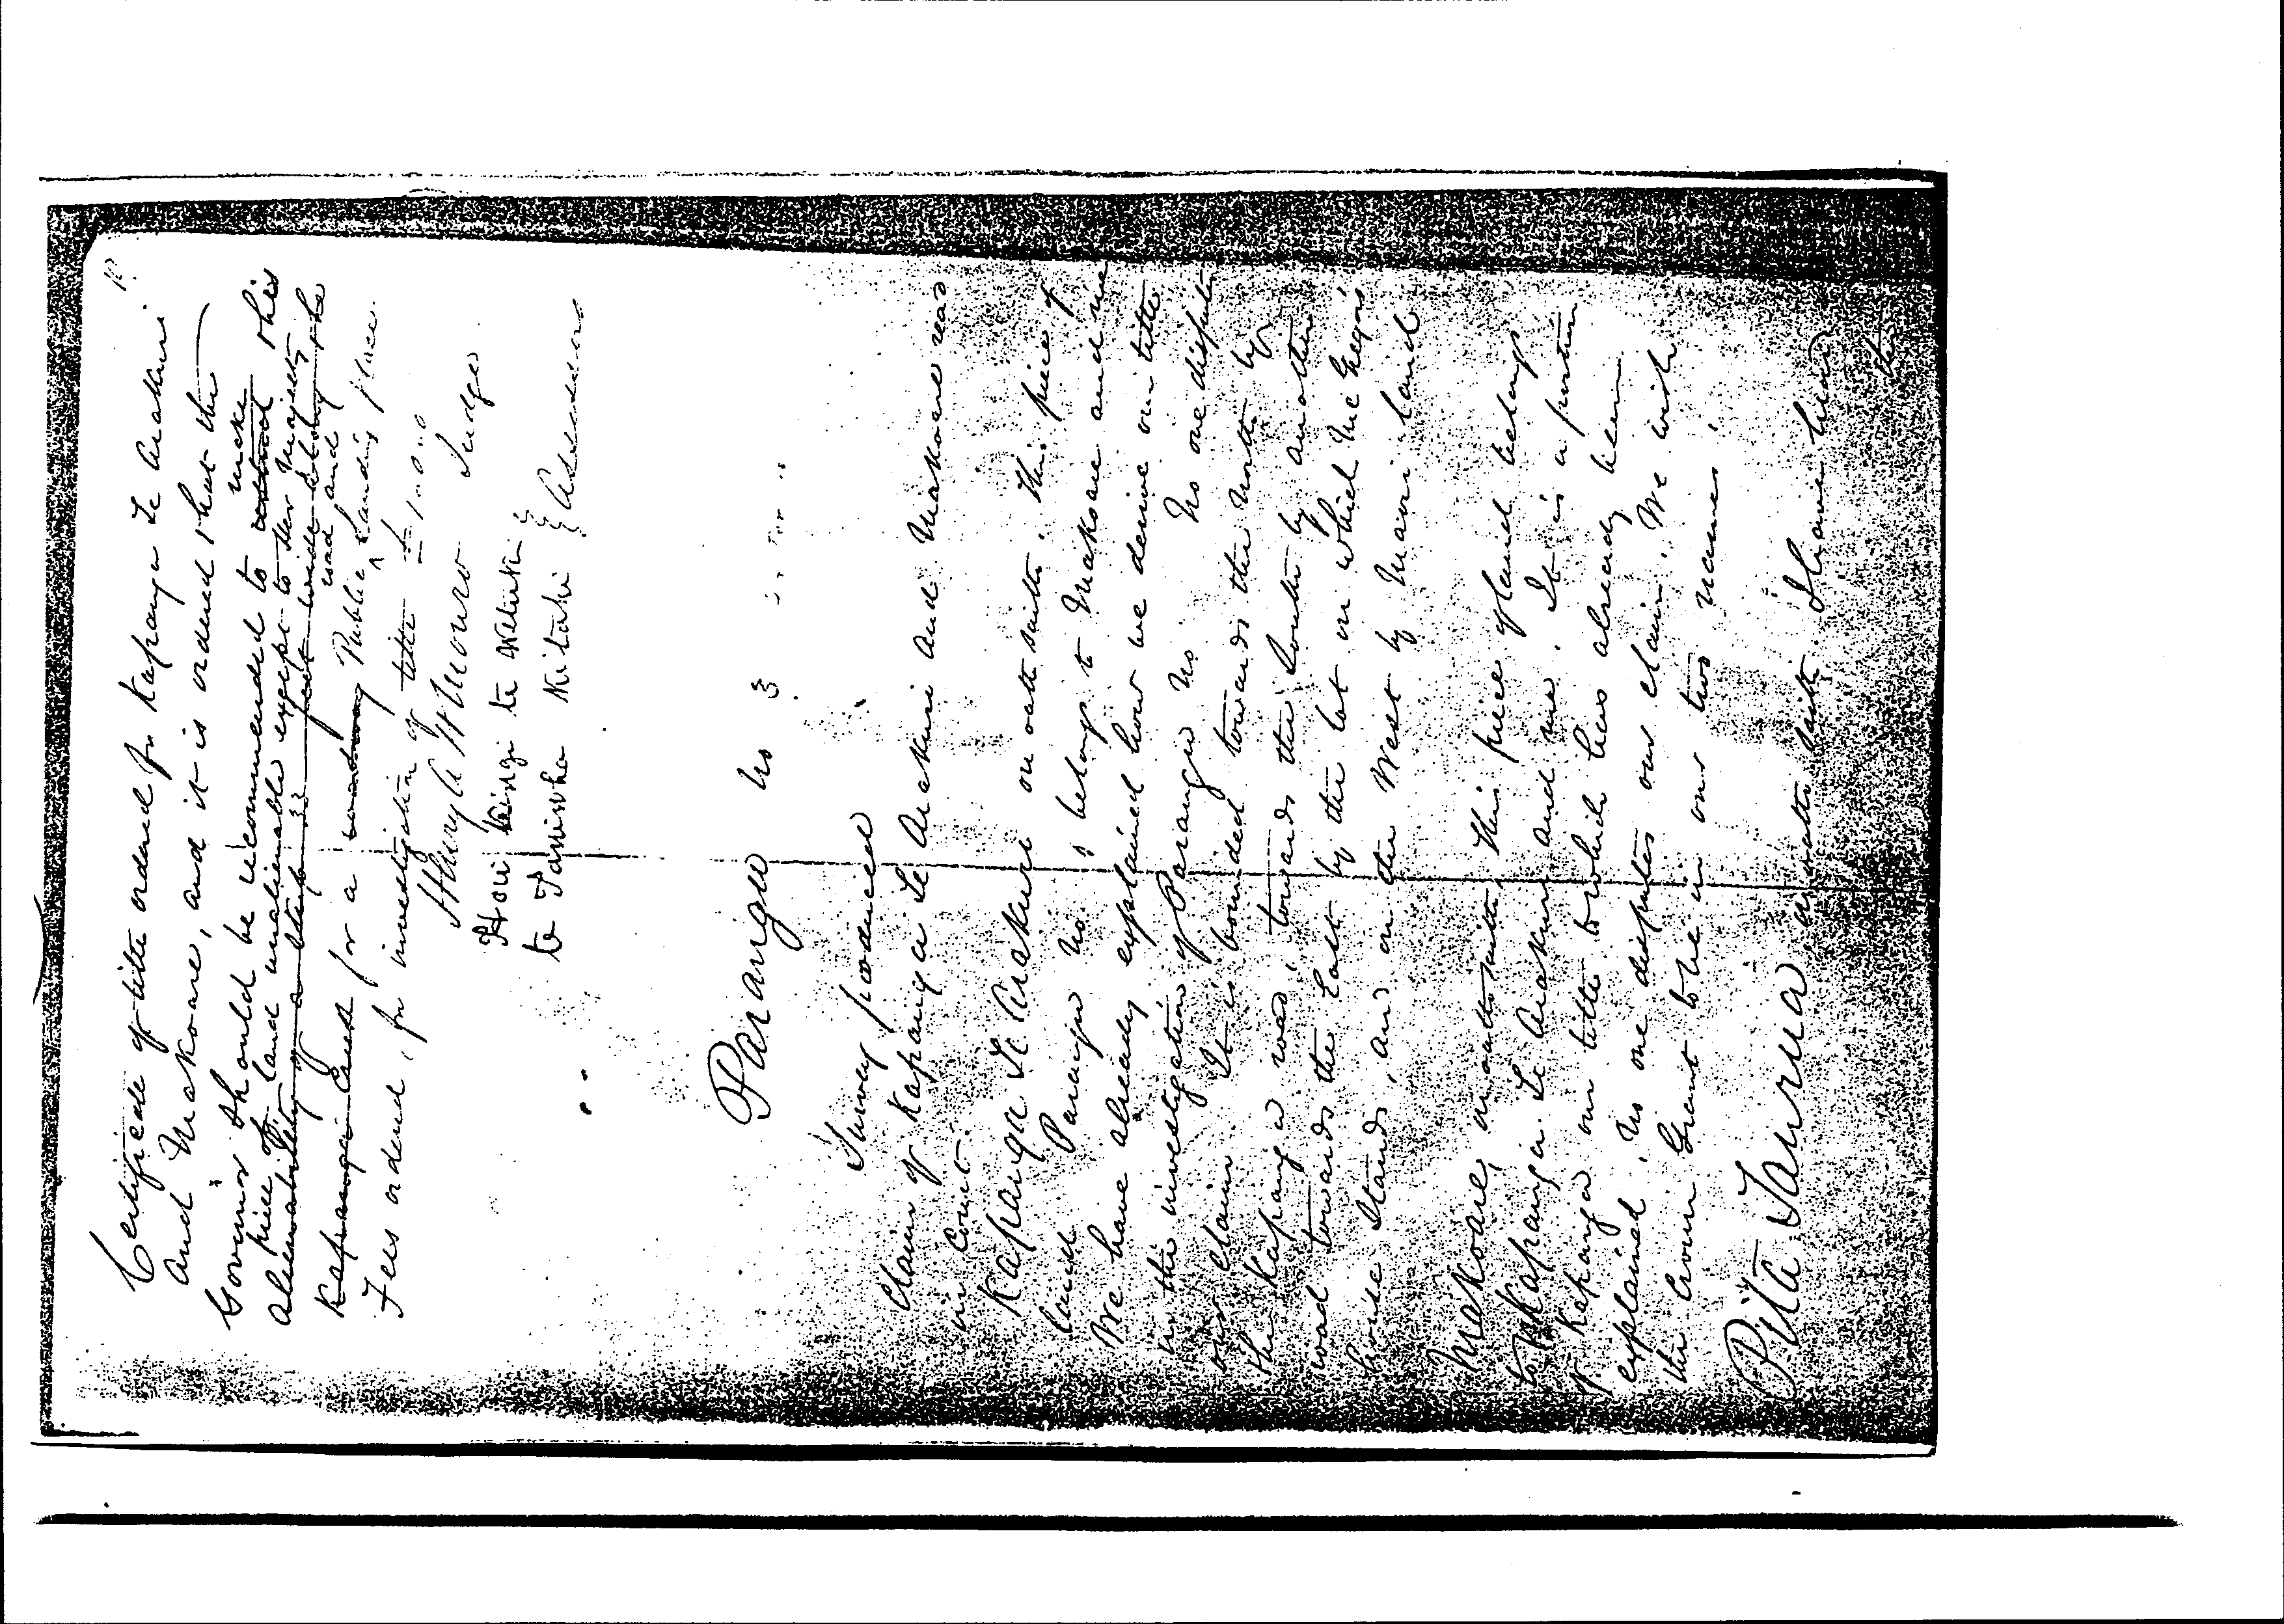 Certificate of title ordered for Kapanga Te Arakuri
And Makoare, and it is ordered that the
Governor should be recommended to extend make this
piece of land unalienable except to Her Majesty
alienability of a strip 33 feet wide along the
Kapanga Creek for a roadway Public road and landing place
Fees ordered, for investigation of title £1.0.0
H Munro Judge
Hori Kingi te
te Tawiwha Kitahi } Assessors
Paranga No 3
Survey produced
Claim of Kapanga Te Arakuri and Makoare read
in Court.
Kapanga Te Arakuri on oath saith. This piece of
land Paranga No belongs to Makoare and me
We have already explained how we derive our title
in the investigation of Paranga No No one disputes
our claim. It is bounded towards the North by
the Kapanga road, towards the South by another
road towards the East by the lot on which McGregor's
house stands, and on the West by Maori land
Makoare, on oath saith, this piece of land belongs
to Kapanga Te Arakuri and me. It is a portion
of Kapanga our title to which has already been
explained. No one disputes our claim. We wish
the Crown Grant to be in our two names.
Pita Taurua on oath saith I have heard
the